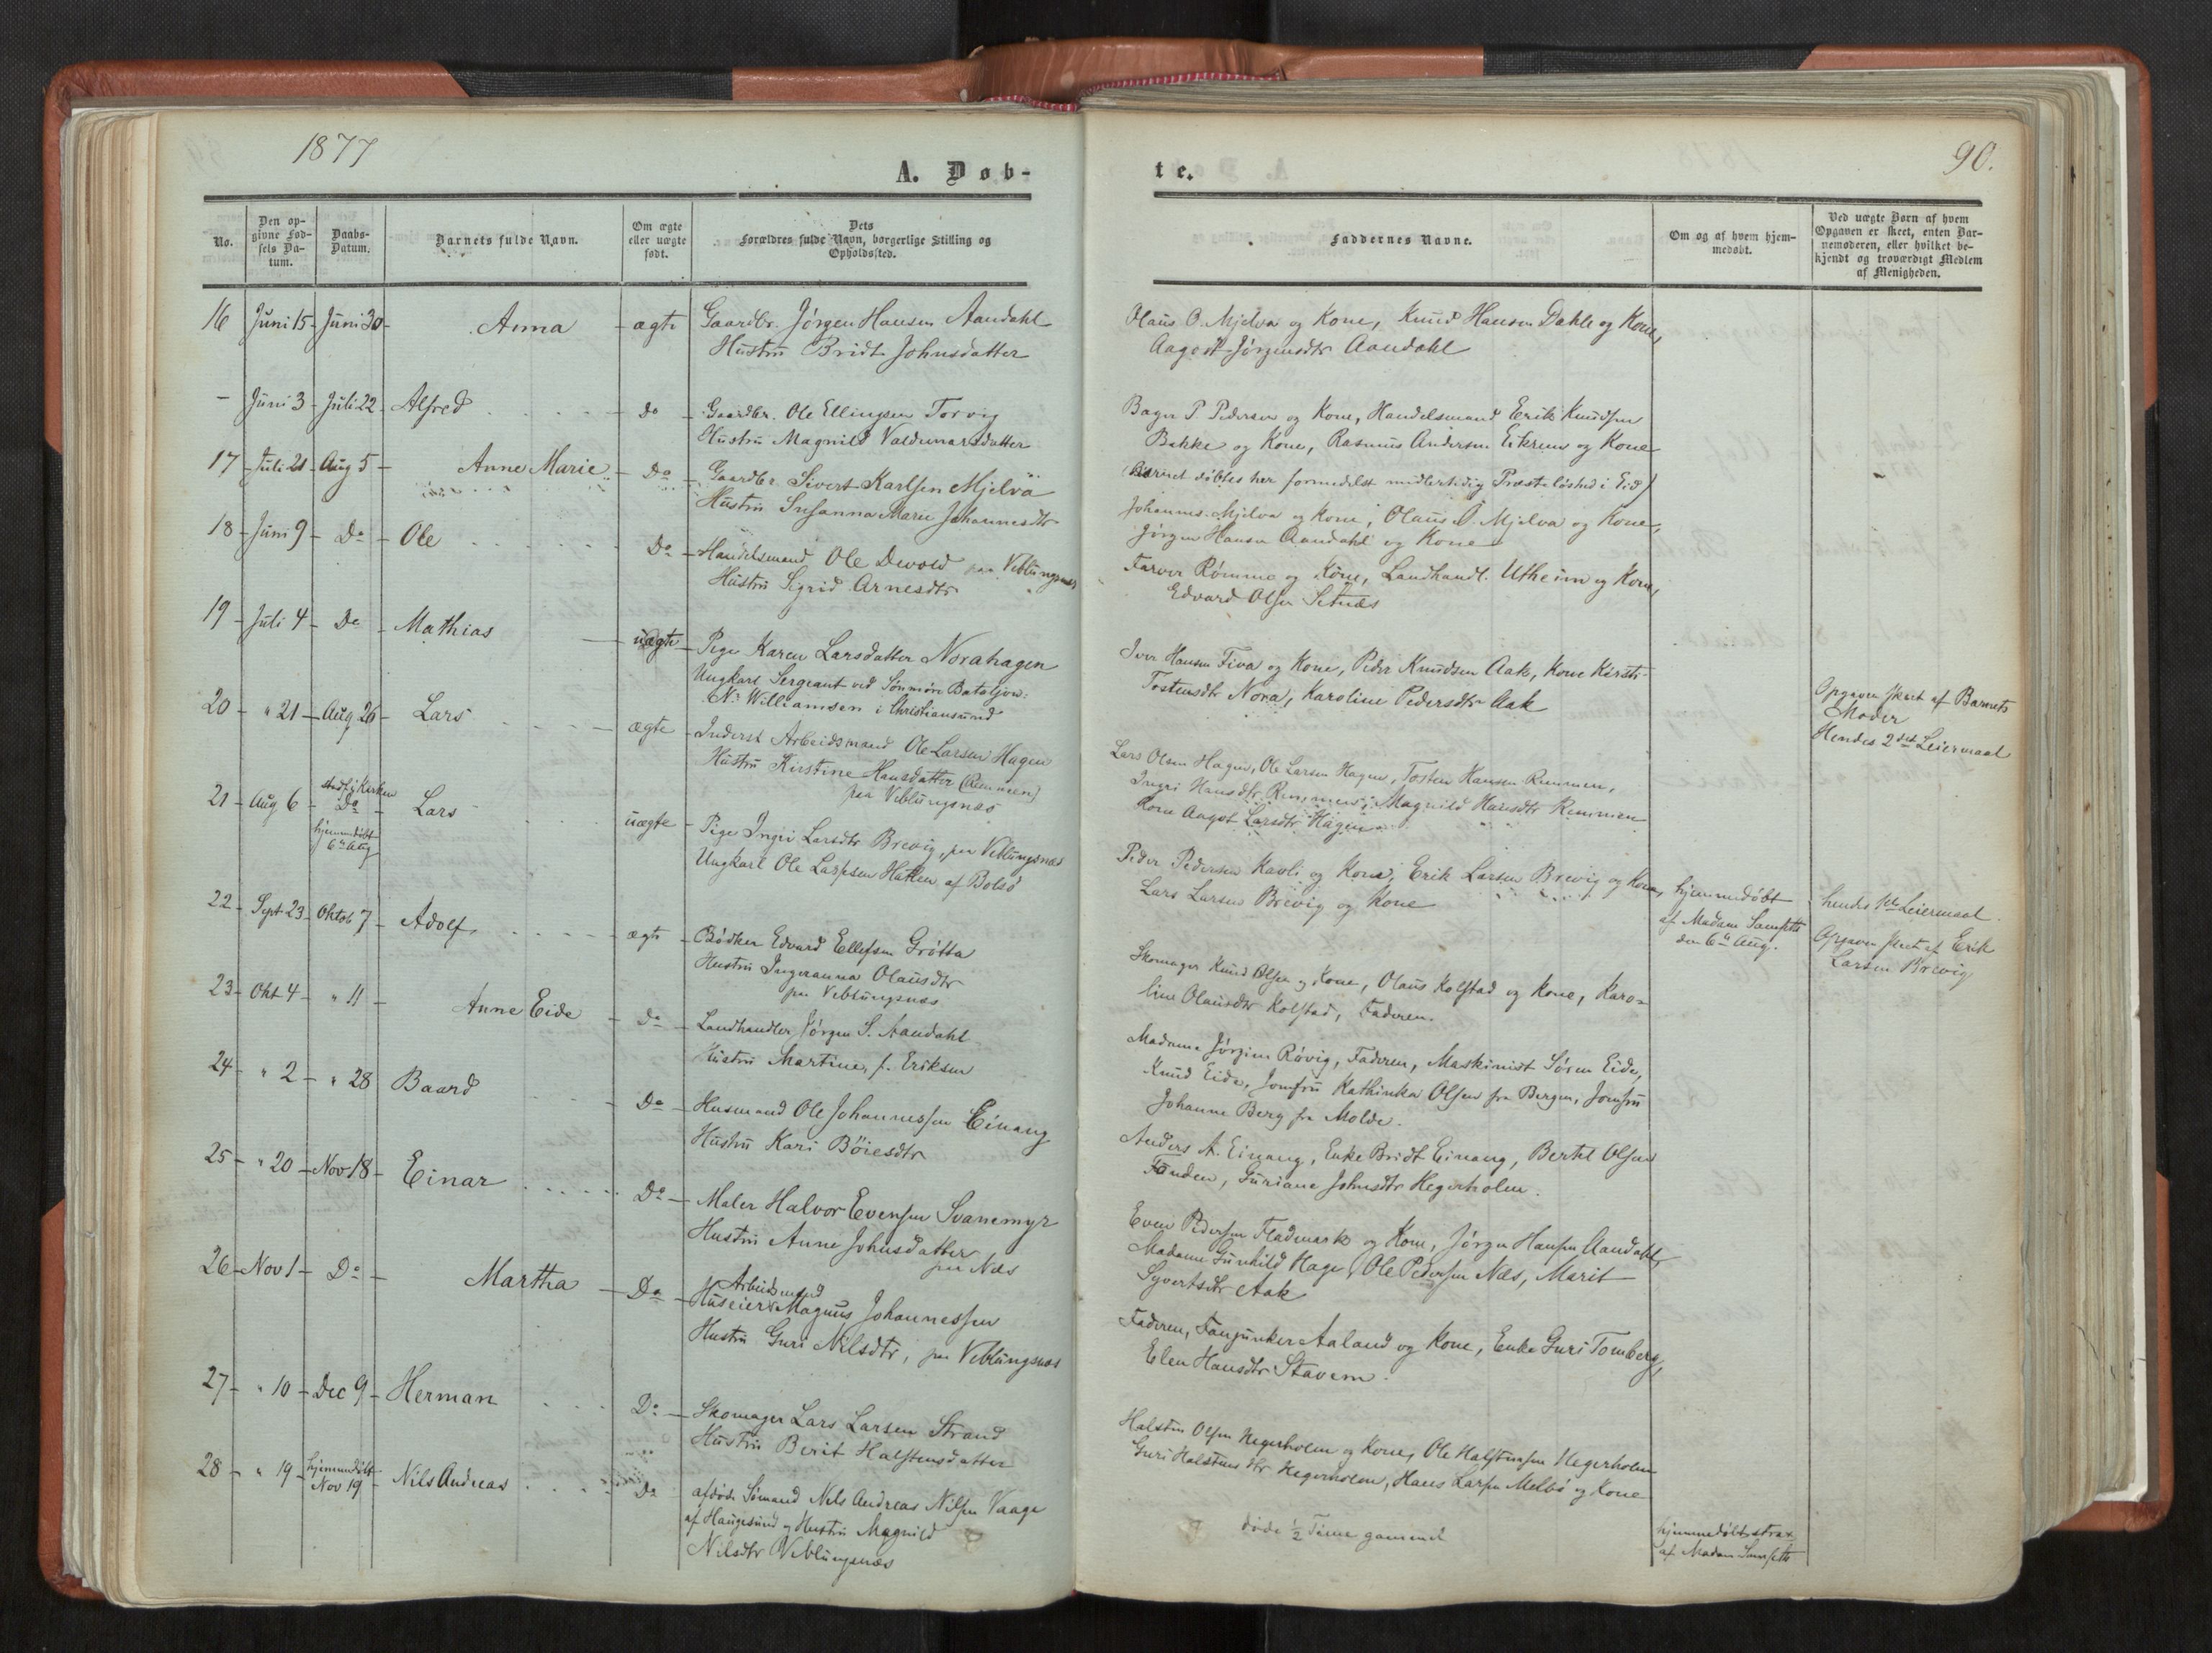 1877
A. Døb-
No.
Den op-
givne Fød-
sels Da-
tum.
Daabs-
Datum.
Barnets fulde Navn.
Om ægte
eller uægte
født.
Dets
Forældres fulde Navn, borgerlige Stilling og
Opholdssted.
16 Juni 15 - Juni 30 - Anna - ægte
Gaardbr. Jørgen Hansen Aandahl
Hustru Bridt Johnsdatter
- Juni 3 - Juli 22 - Alfred - do
Gaardbr. Ole Ellingsen Torvig
Hustru Magnild Valdemarsdatter
17 - Juli 21 - Aug 5 - Anne Marie - Do
Gaardbr. Sivert Karlsen Mjelva
Hustru Susanna Marie Johannesdtr
18 - Juni 9 - Do - Ole - Do
Handelsmand Ole Devold paa Veblungsnæs
Hustru Sigrid Arnesdtr
19 - Juli 4 - Do - Mathias - uægte
Pige Karen Larsdatter Norahagen
Ungkarl Sergeant ved Sönmöre Bataljon:
N. Williamsen i Christiansund
20 - " 21 - Aug 26 - Lars - ægte
Inderst Arbeidsmand Ole Larsen Hagen
Hustru Kirstine Hansdatter (Remmen)
paa Veblungsnæs
21 - Aug 6 - stadf. i Kirken
Do - Lars - uægte
hjemmedöbt
6te Aug
Pige Ingri Larsdtr Brevig, paa Veblungsnæs
Ungkarl Ole Larssen Hatlen af Bolsö
22 - Sept 23 - Oktob 7 - Adolf - ægte
Bödker Edvard Ellefsen Grötta
Hustru Ingeranna Olausdtr
paa Veblungsnæs
23 - Okt 4 - " 11 - Anne Eide - Do
Landhandler Jörgen S. Aandahl
Hustru Martine, f. Eriksen
24 - " 2 - " 28 Baard - Do
Husmand Ole Johannessen Einang
Hustru Kari Böiesdtr
25 - " 20 - Nov 18 - Einar - Do
Maler Halvor Evensen Svanemyr
Hustru Anne Johnsdatter
paa Næs
26 - Nov 1 - Do - Martha - Do
Arbeidsmand
Huseier Magnus Johannessen
Hustru Guri Nilsdtr, paa Veblungsnæs
27 - " 10 - Dec 9 - Herman - Do
Skomager Lars Larsen Strand
Hustru Berit Halstensdatter
28 - " 19 - hjemmedöbt
Nov 19 - Nils Andreas - Do
afdöde Sömand Nils Andreas Nilsen Vaage
af Haugesund og Hustru Magnild
Nilsdtr Veblungsnæs
te.
90.
Faddernes Navne.
Om og af hvem hjem-
medøbt.
Ved uægte Børn af hvem
Opgaven er skeet, enten Bar-
nemoderen, eller hvilket be-
kjendt og troværdigt Medlem
af Menigheden.
Olaus O. Mjelva og Kone, Knud Hansen Dahle og Kone,
Aagot Jörgensdtr Aandahl
Bager P Pedersen og Kone, Handelsmand Erik Knudsen
Bakke og Kone, Rasmus Andersen Eikrem og Kone
(Barnet döbtes her formedelst midlertidig Præstelöshed i Eid)
Johannes Mjelva og Kone, Olaus O. Mjelva og Kone,
Jörgen Hansen Aandahl og Kone
Farver Römme og Kone, Landhandl. Utheim og Kone,
Edvard Olsen Setnæs
Iver Hansen Fiva og Kone, Peder Knudsen Aak, Kone Kirsti
Tostensdtr Nora, Karoline Pedersdtr Aak
Opgaven skeet af Barnets
Moder
Hendes 2det Leiermaal
Lars Olsen Hagen, Ole Larsen Hagen, Tosten Hansen Remmen,
Ingri Hansdtr Remmen, Magnild Hansdtr Remmen
Kone Aagot Larsdtr Hagen
Peder Pedersen Kavli og Kone, Erik Larsen Brevig og Kone,
Lars Larsen Brevig og Kone
hjemmedöbt
af Madam Samseth
den 6te Aug.
hendes 1ste Leiermaal.
Opgaven skeet af Erik
Larsen Brevig
Skomager Knud Olsen og Kone, Olaus Kolstad og Kone, Karo-
line Olausdtr Kolstad, Faderen.
Madame Jörgine Rövig, Faderen, Maskinist Sören Eide,
Knud Eide, Jomfru Kathinka Olsen fra Bergen, Jomfru
Johanne Berg fra Molde.
Anders A. Einang, Enke Bridt Einang, Bertel Olsen
Fonden, Guriane Johnsdtr Hegerholm.
Even Pedersen Flademark og Kone, Jörgen Hansen Aandahl,
Madame Gunhild Hage, Ole Pedersen Næs, Marit
Syvertsdtr Aak
Faderen, Fanejunker Aaland og Kone, Enke Guri Tomberg,
Elen Hansdtr Stavem.
Halsten Olsen Hegerholm og Kone, Ole Halstensen Hegerholm
Guri Halstensdtr Hegerholm, Hans Larsen Melbö og Kone
döde 1/2 Time gammel
hjemmedöbt strax
af Madam Samseth